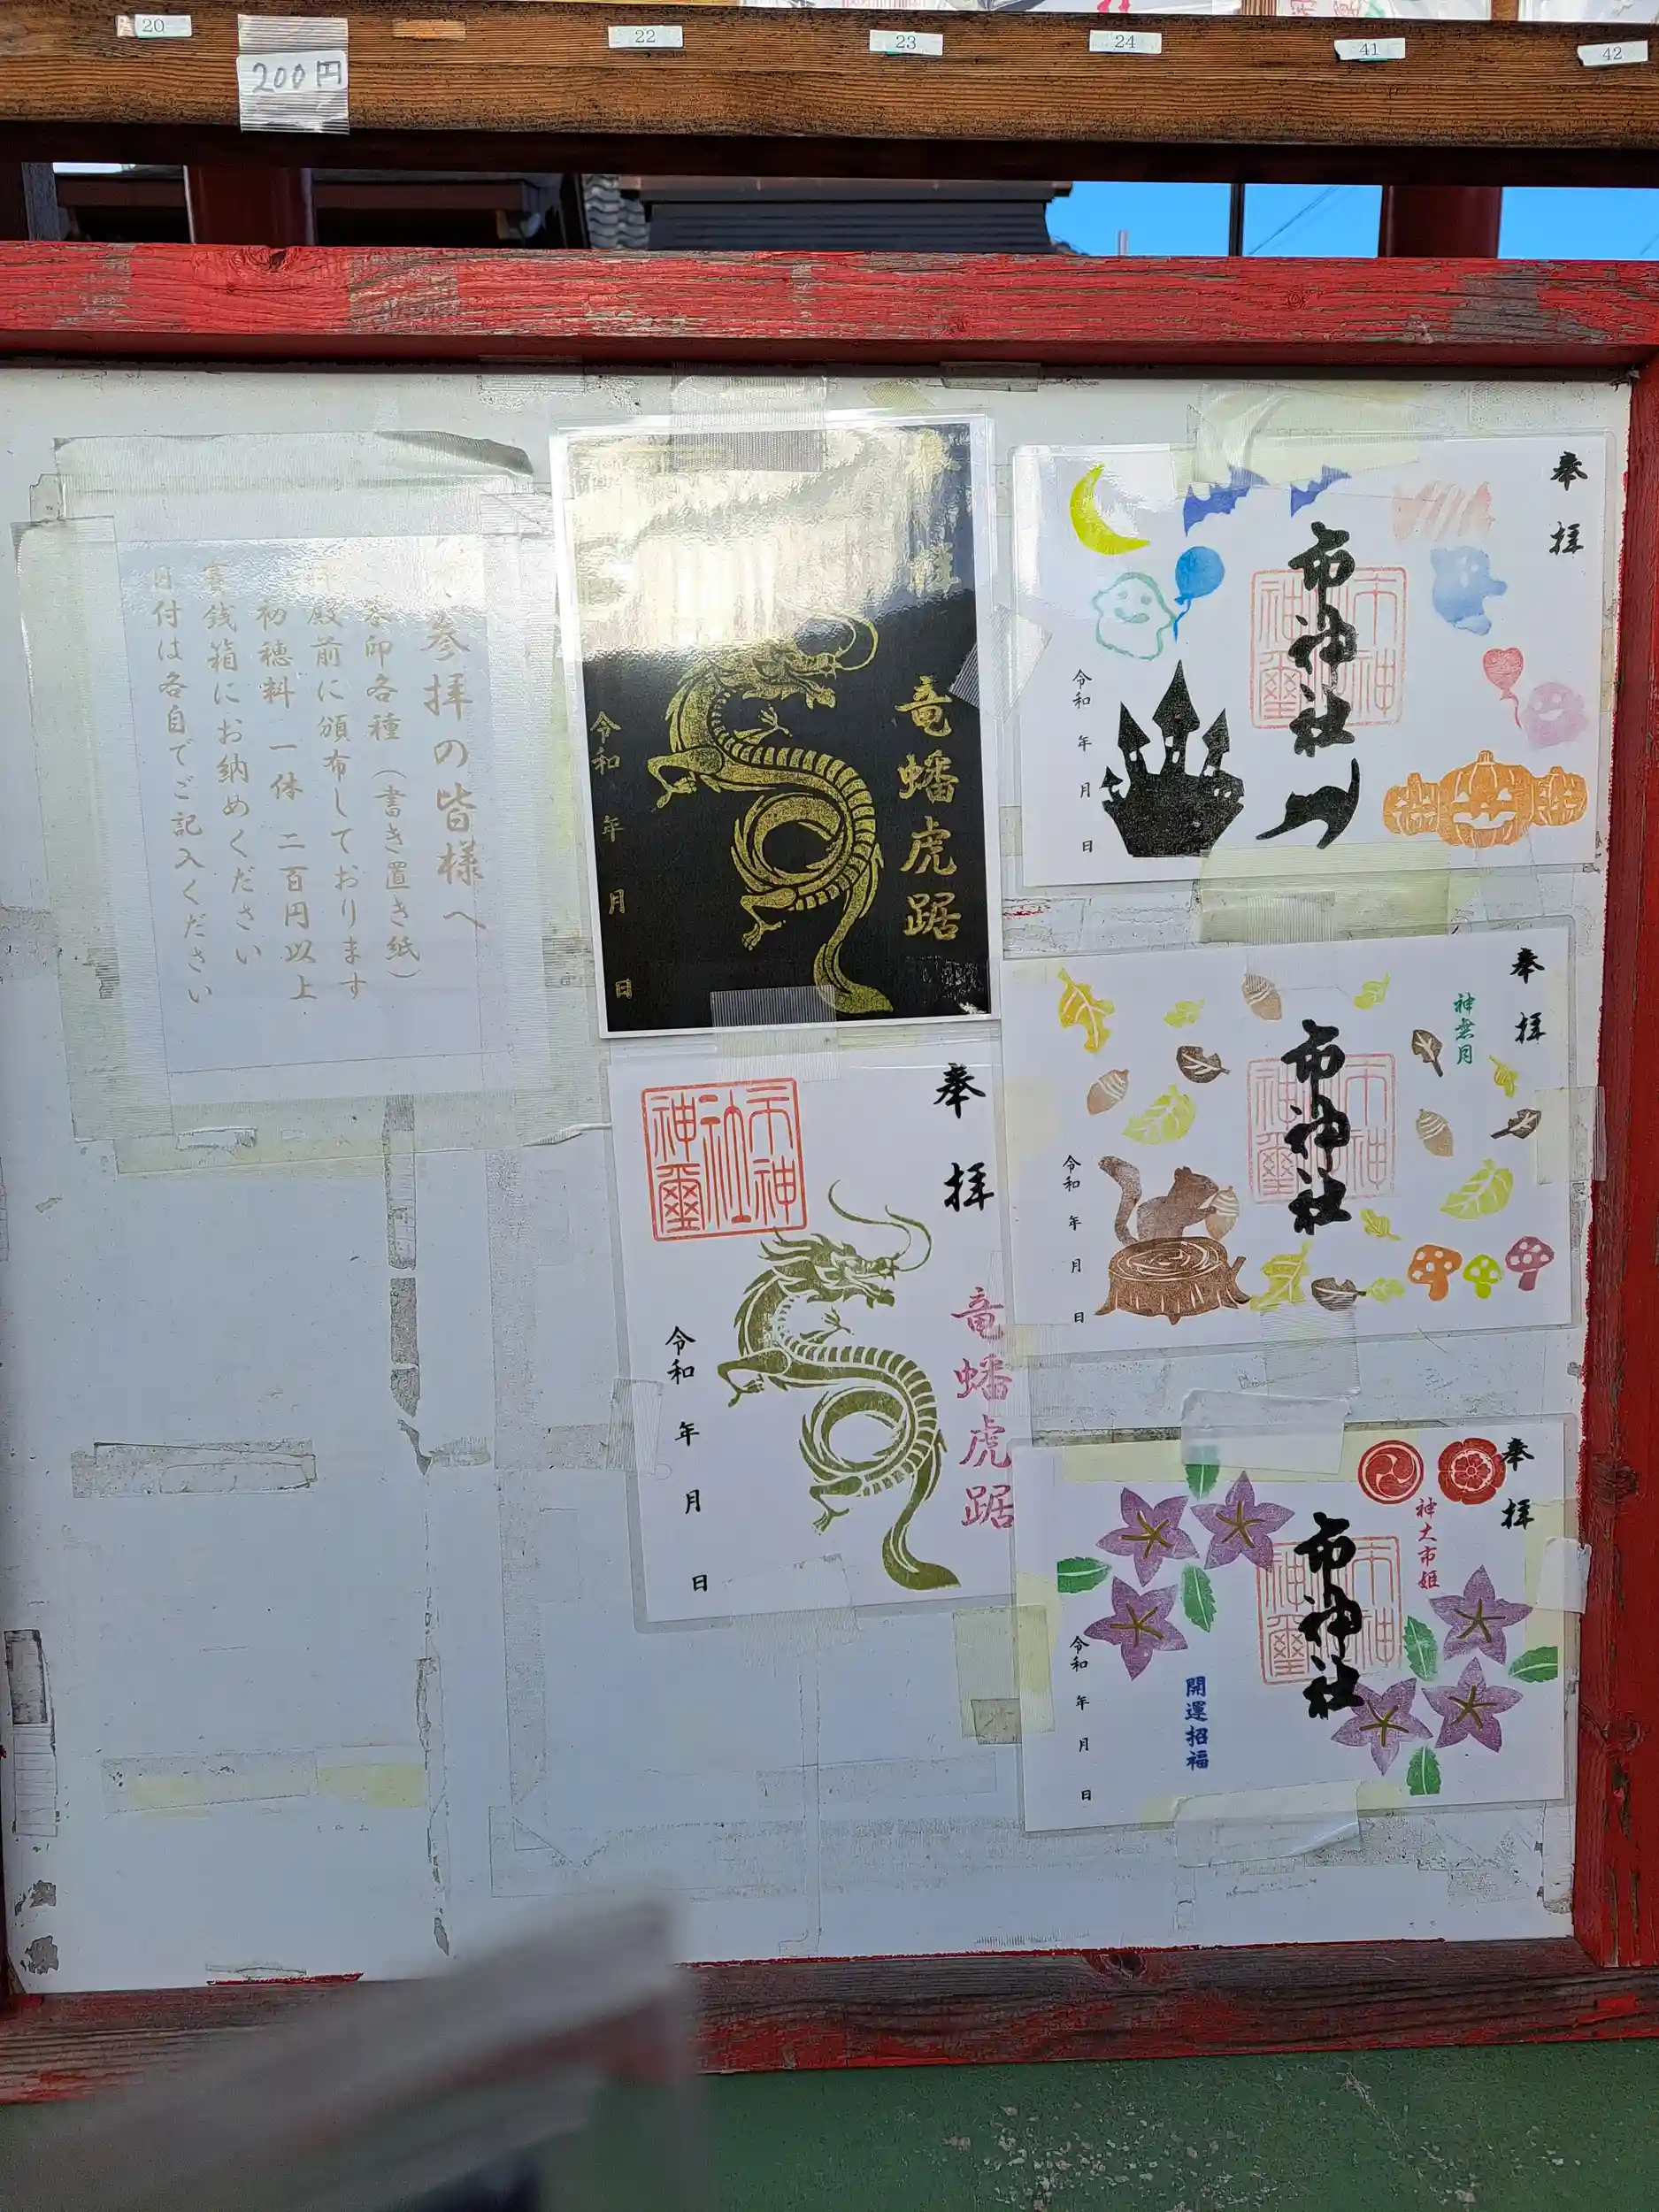 20
200円
22
23
24
41
42
参拝の皆様へ
印各種(書き置き紙)
殿前に頒布しております
初穂料 一体 二百円以上
賽銭箱にお納めください
日付は各自でご記入ください
竜蟠虎踞
令和 年 月 日
奉拝
竜蟠虎踞
市神社神璽
令和 年 月 日
奉拝
市神社
令和 年 月 日
奉拝
神無月
市神社
令和 年 月 日
奉拝
神大市姫
市神社
開運招福
令和 年 月 日